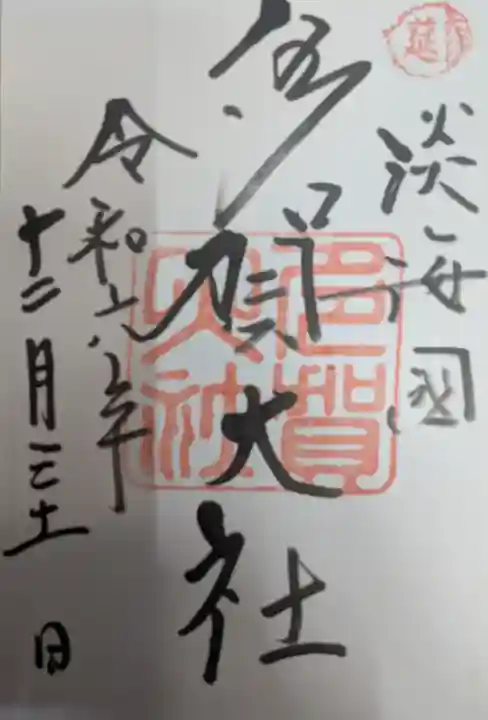 淡海国
多賀大社
令和六年
十二月三十一日
多賀
大社